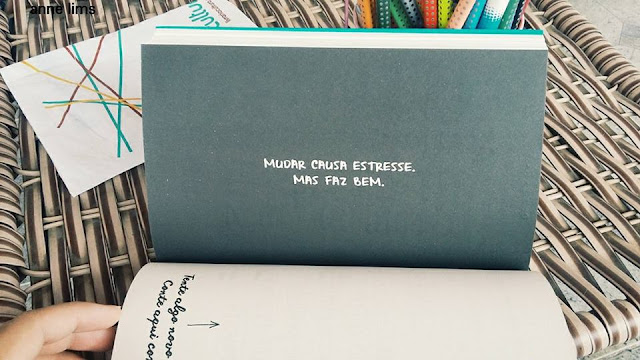 anne lims
MUDAR CAUSA ESTRESSE.
MAS FAZ BEM.
Tente algo novo
Conte aqui co